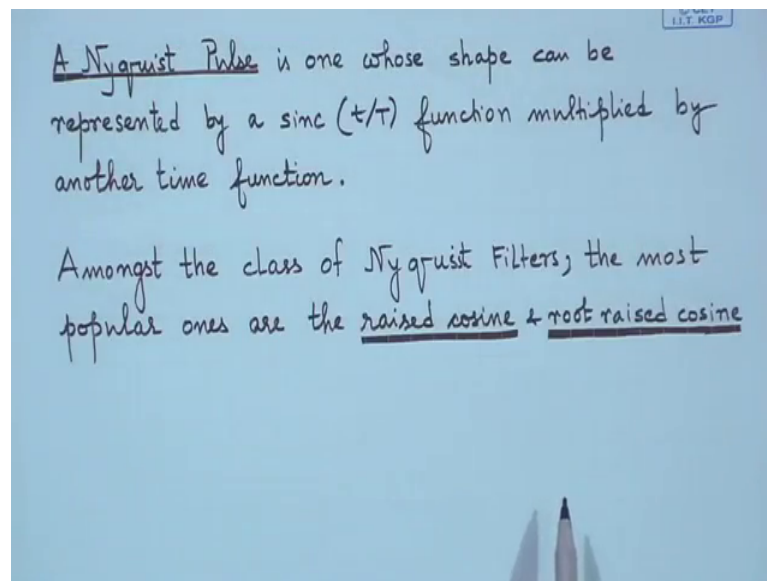 I.I.T. KGP
A Nyquist Pulse is one whose shape can be
represented by a sinc (t/T) function multiplied by
another time function.
Amongst the class of Nyquist Filters, the most
popular ones are the raised cosine & root raised cosine